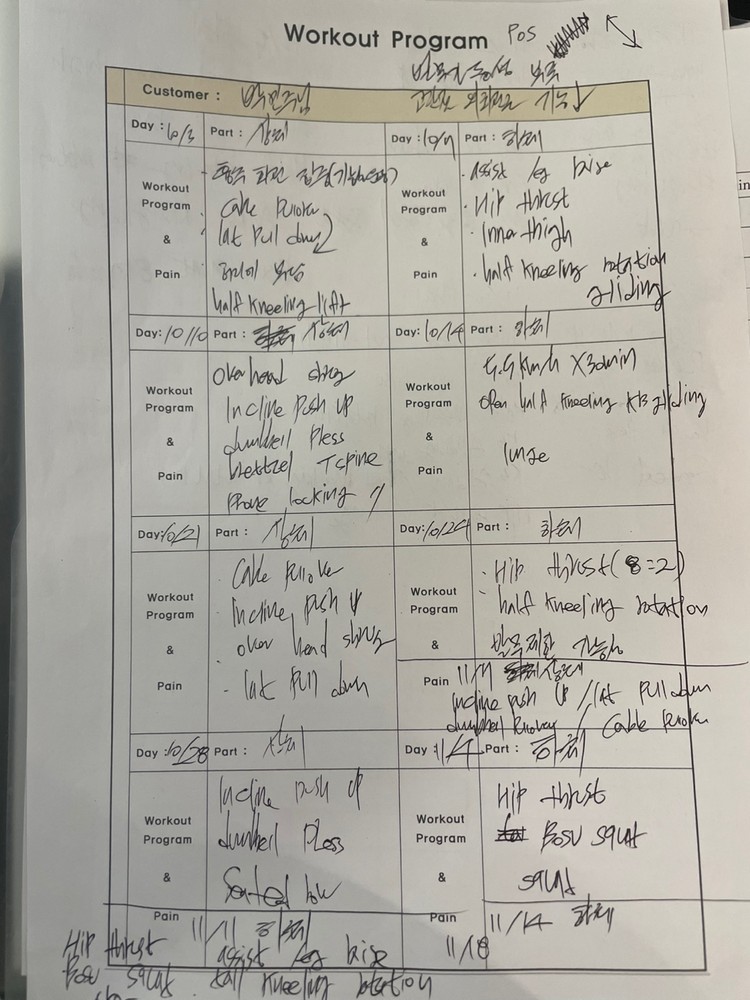 Workout Program POS
발목 가동성 부족
Customer :
Day : 10/3 Part : 상체
Workout
Program
&
Pain
Cable pullover
lat pull down
허리에 부담
half kneeling lift
Day : 10/7 Part : 하체
Workout
Program
&
Pain
· assist leg raise
· Hip thrust
· Inner thigh
· half kneeling rotation
gliding
Day: 10/10 Part : 상체
Workout
Program
&
Pain
Over head
Incline push up
dumbell Pless
bretzel T spine
Prone locking 〃
Day: 10/14 Part : 하체
Workout
Program
&
Pain
5.5km/h X30min
open half kneeling KB gliding
lunge
Day: 10/21 Part : 상체
Workout
Program
&
Pain
· Cable pullover
· incline push up
· over head
· lat pull down
Day: 10/24 Part : 하체
Workout
Program
&
Pain
· Hip thrust (8=2)
· half kneeling rotation
발목제한
11/7 상체
incline push up / lat pull down
dumbell pullover / Cable pullover
Day : 10/28 Part : 상체
Workout
Program
&
Pain
Incline push up
dumbell Pless
Seated low
Day : 11/4 Part : 하체
Workout
Program
&
Pain
Hip thrust
Bosu squat
squat
11/11 하체
Hip thrust assist leg raise
Bosu squat tall kneeling rotation
11/14 하체
11/18